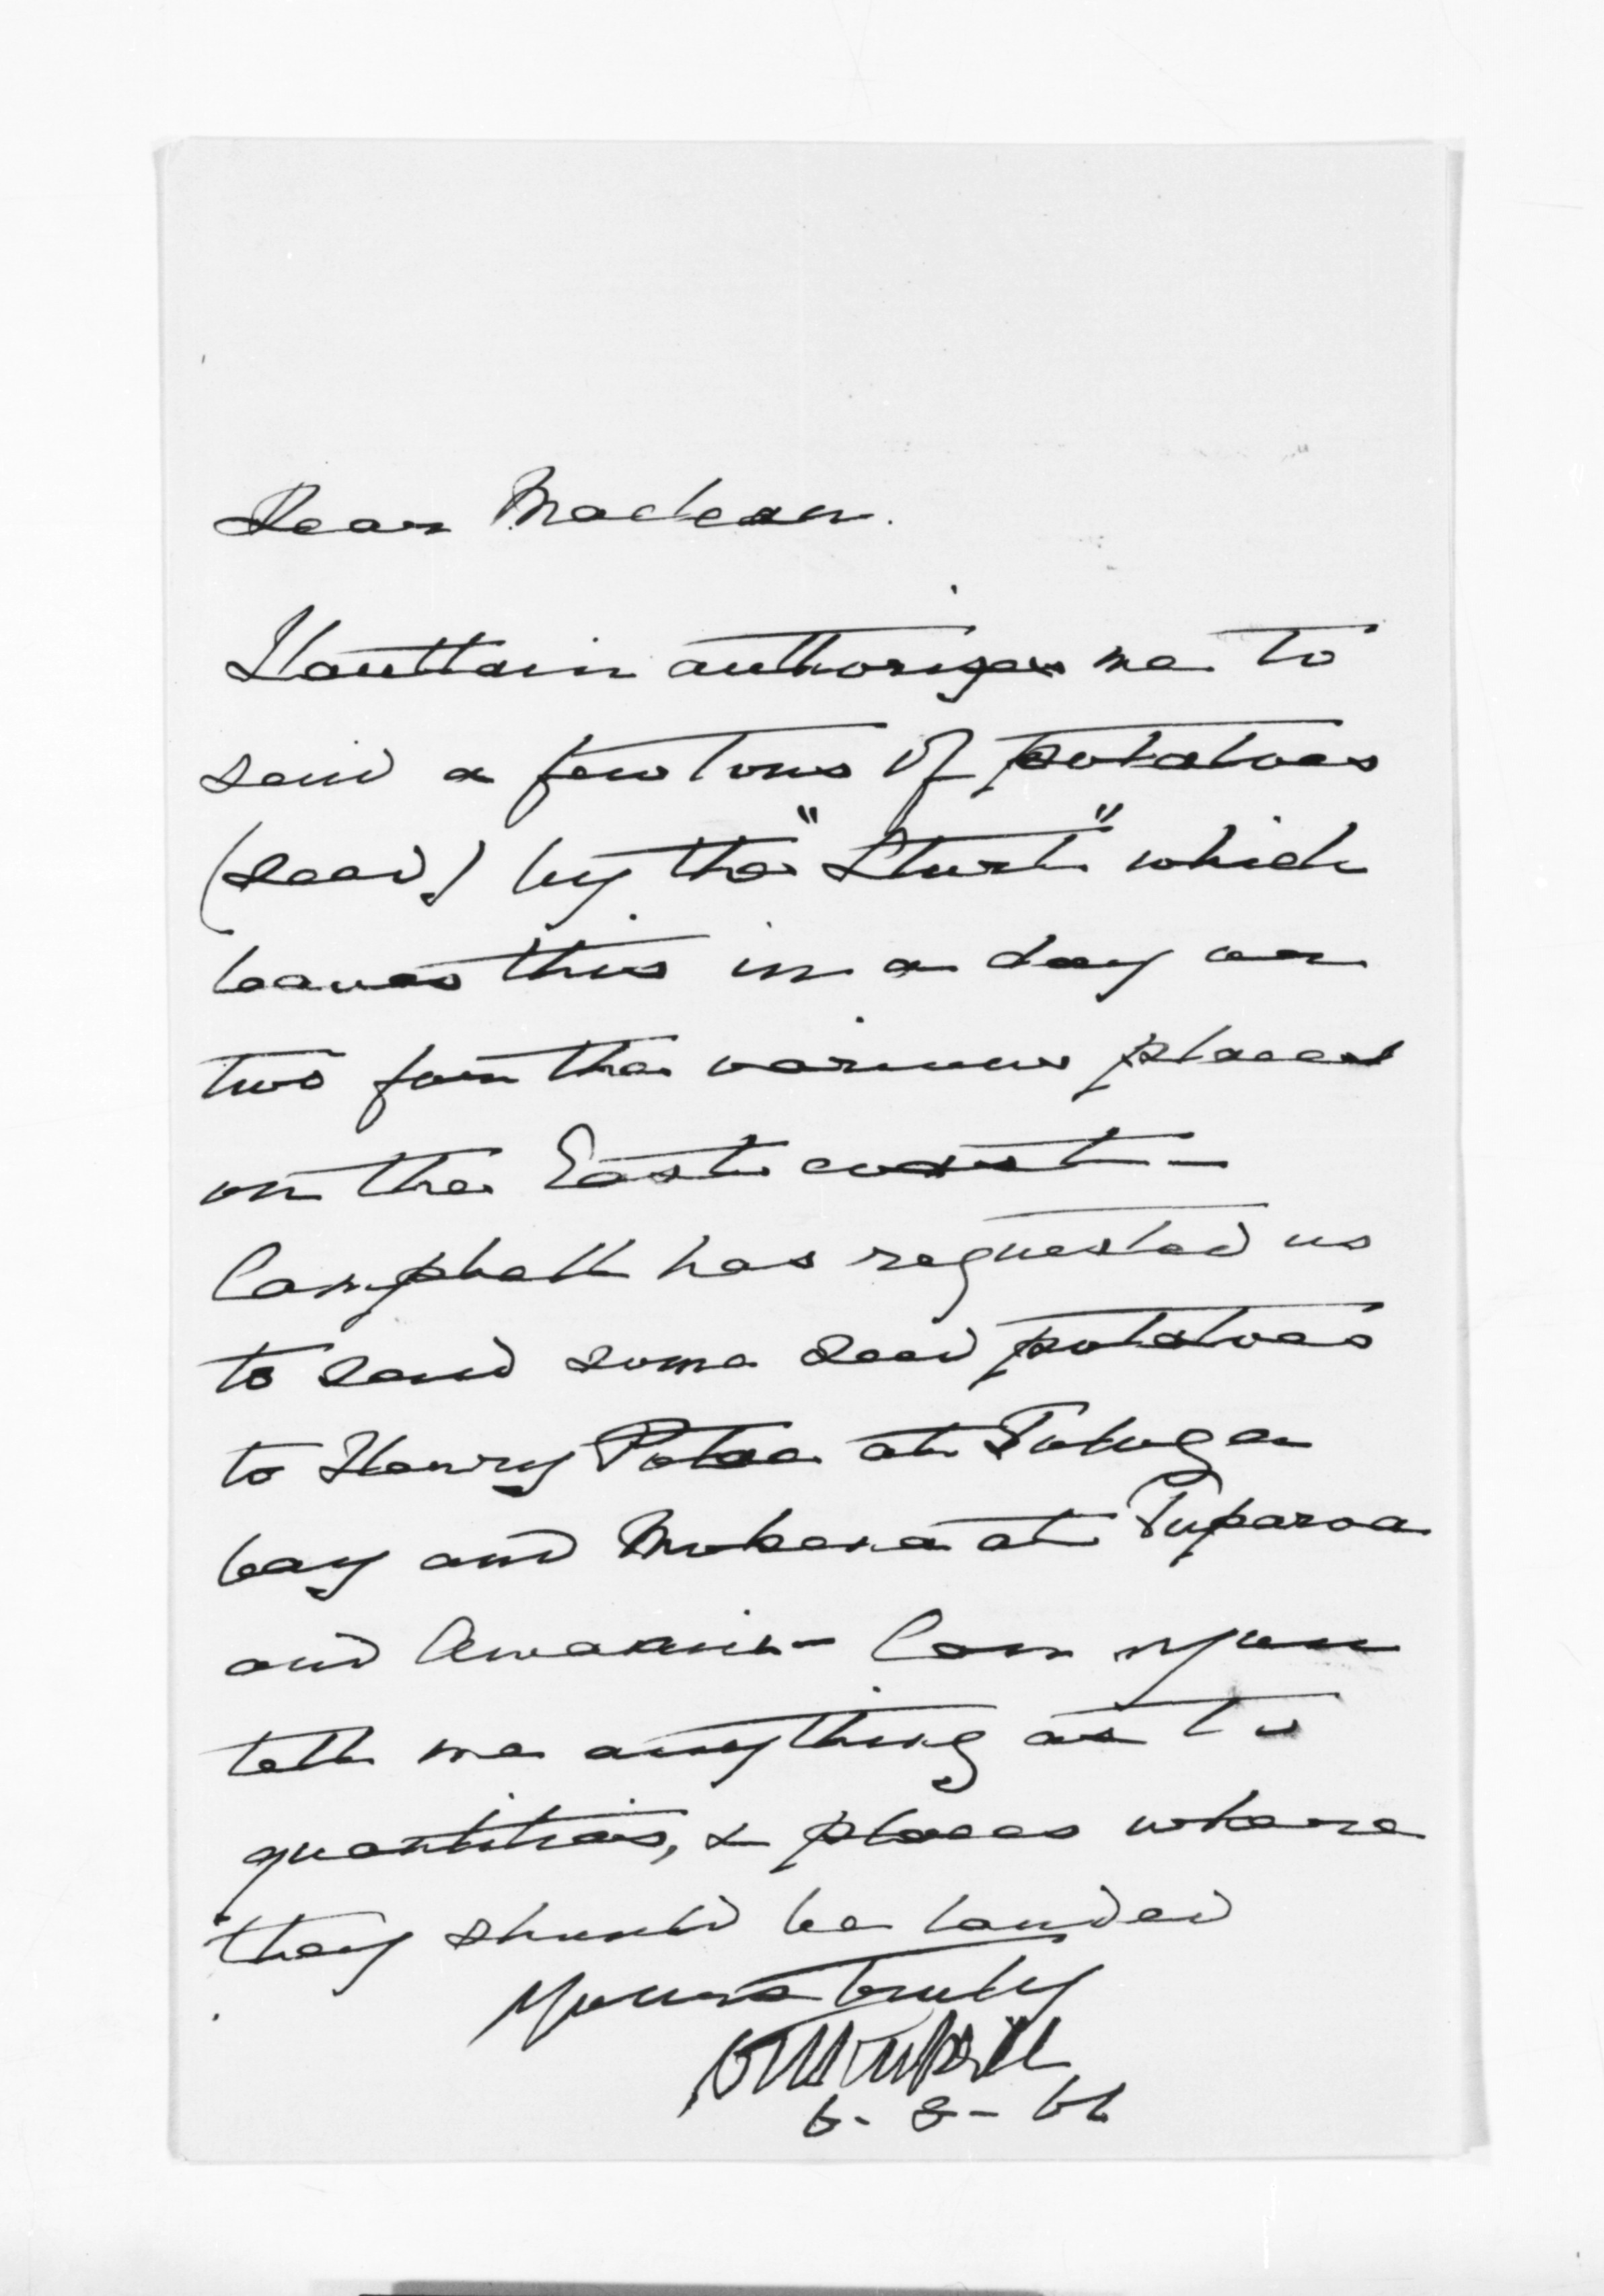 Dear Maclean.
Haultain authorizes me to
send a few tons of potatoes
(seed) by the "Sturt" which
leaves this in a day or
two for the various places
on the East coast —
Campbell has requested us
to send some seed potatoes
to Henry Potae at Tologa
bay and Mokena at Tuparoa
and Awanui — Can you
tell me anything as to
quantities, & places where
they should be landed
Yours truly
6 - 8 - 66